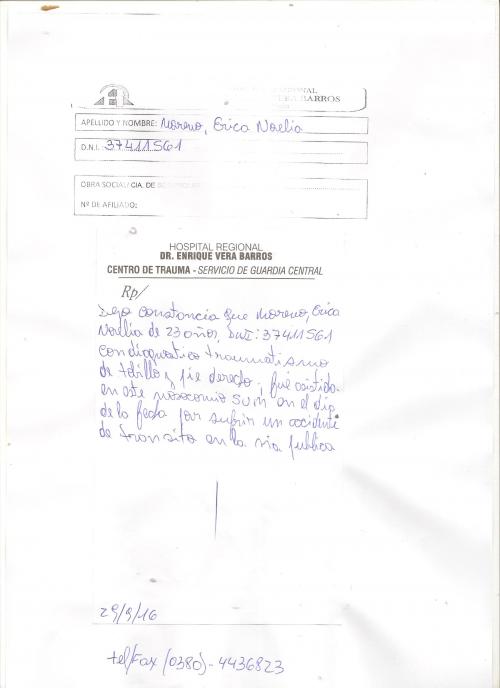 VERA BARROS
APELLIDO Y NOMBRE: Moreno, Erica Noelia
D.N.I.: 37411561
OBRA SOCIAL/CIA. DE
Nº DE AFILIADO:
HOSPITAL REGIONAL
DR. ENRIQUE VERA BARROS
CENTRO DE TRAUMA - SERVICIO DE GUARDIA CENTRAL
Rp/
Dejo constancia que Moreno, Erica
Noelia de 23 años, DNI: 37411561
con diagnostico traumatismo
de tobillo y pie derecho, fue asistida
en este nosocomio en el dia
de la fecha por sufrir un accidente
de transito en la via publica
29/9/16
tel/Fax (0380)-4436823